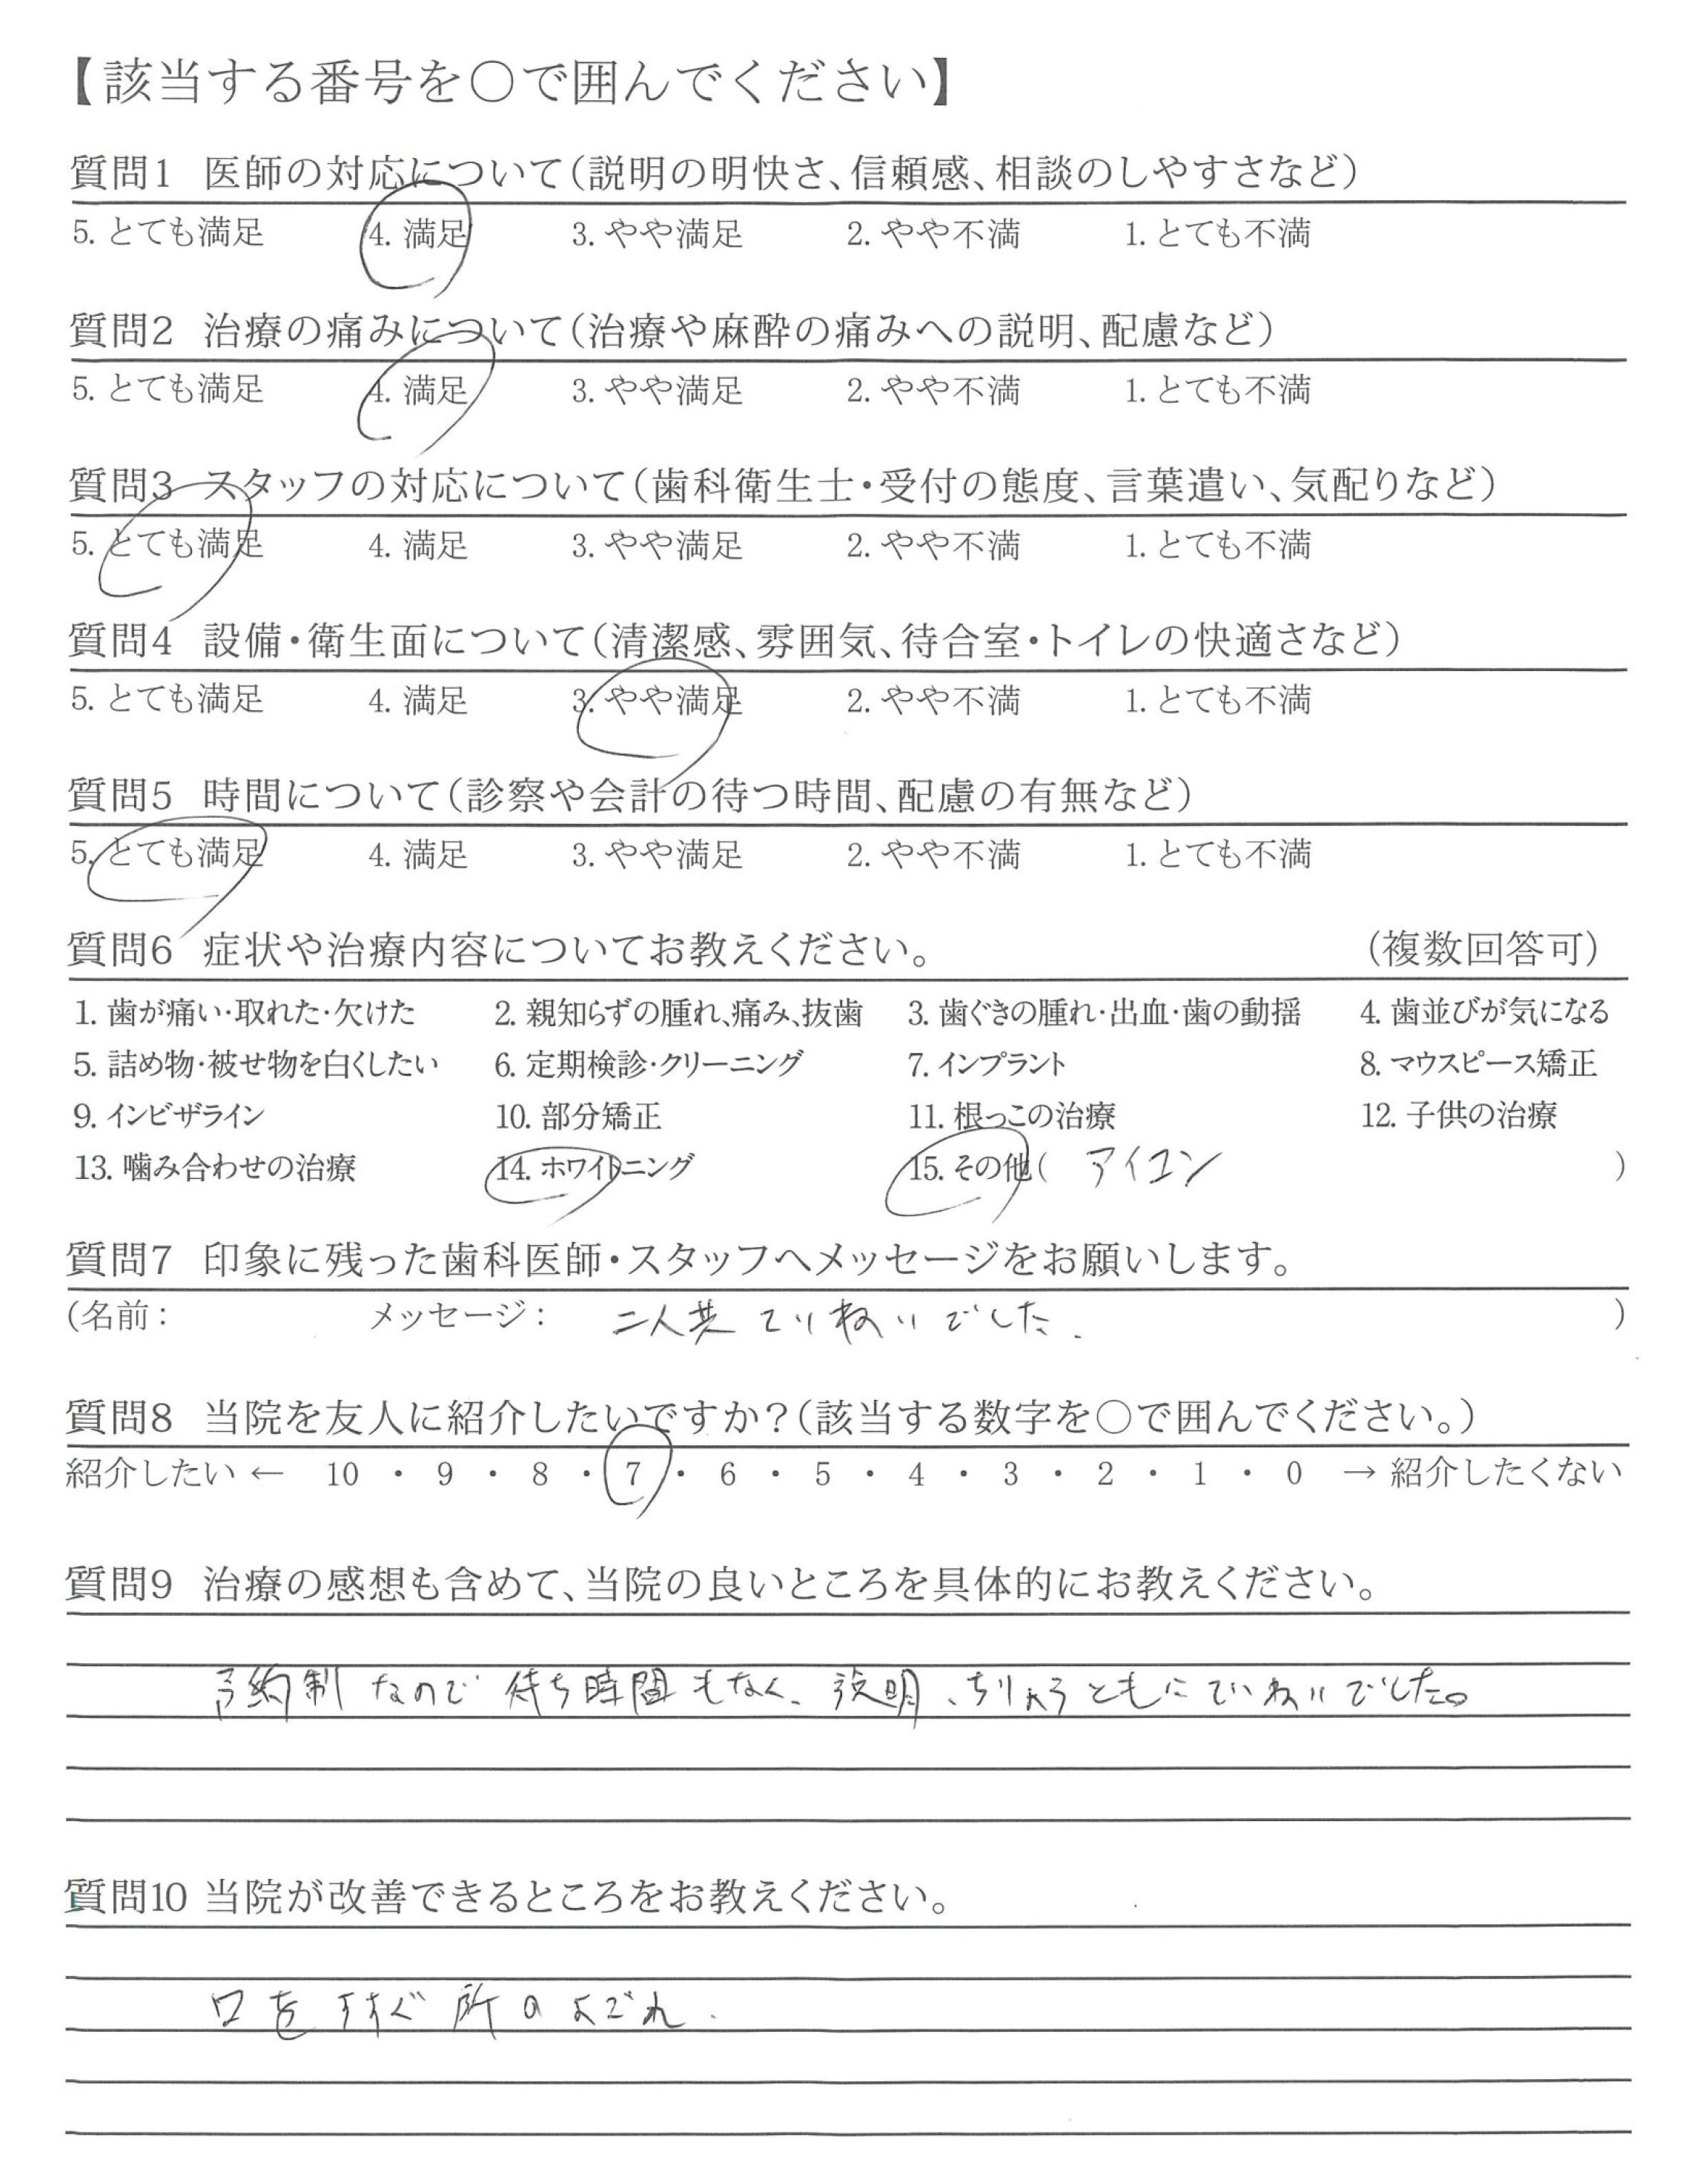 【該当する番号を○で囲んでください】
質問1 医師の対応について(説明の明快さ、信頼感、相談のしやすさなど)
5. とても満足 4. 満足 3. やや満足 2. やや不満 1. とても不満
質問2 治療の痛みについて(治療や麻酔の痛みへの説明、配慮など)
5. とても満足 4. 満足 3. やや満足 2. やや不満 1. とても不満
質問3 スタッフの対応について(歯科衛生士・受付の態度、言葉遣い、気配りなど)
5. とても満足 4. 満足 3. やや満足 2. やや不満 1. とても不満
質問4 設備・衛生面について(清潔感、雰囲気、待合室・トイレの快適さなど)
5. とても満足 4. 満足 3. やや満足 2. やや不満 1. とても不満
質問5 時間について(診察や会計の待つ時間、配慮の有無など)
5. とても満足 4. 満足 3. やや満足 2. やや不満 1. とても不満
質問6 症状や治療内容についてお教えください。 (複数回答可)
1. 歯が痛い・取れた・欠けた 2. 親知らずの腫れ、痛み、抜歯 3. 歯ぐきの腫れ・出血・歯の動揺 4. 歯並びが気になる
5. 詰め物・被せ物を白くしたい 6. 定期検診・クリーニング 7. インプラント 8. マウスピース矯正
9. インビザライン 10. 部分矯正 11. 根っこの治療 12. 子供の治療
13. 噛み合わせの治療 14. ホワイトニング 15. その他( アイコン )
質問7 印象に残った歯科医師・スタッフへメッセージをお願いします。
(名前: メッセージ: 二人共ていねいでした. )
質問8 当院を友人に紹介したいですか?(該当する数字を○で囲んでください。)
紹介したい ← 10 ・ 9 ・ 8 ・ 7 ・ 6 ・ 5 ・ 4 ・ 3 ・ 2 ・ 1 ・ 0 → 紹介したくない
質問9 治療の感想も含めて、当院の良いところを具体的にお教えください。
予約制なので待ち時間もなく、説明、ちりょうともにていねいでした。
質問10 当院が改善できるところをお教えください。
口をすすぐ所のよごれ.